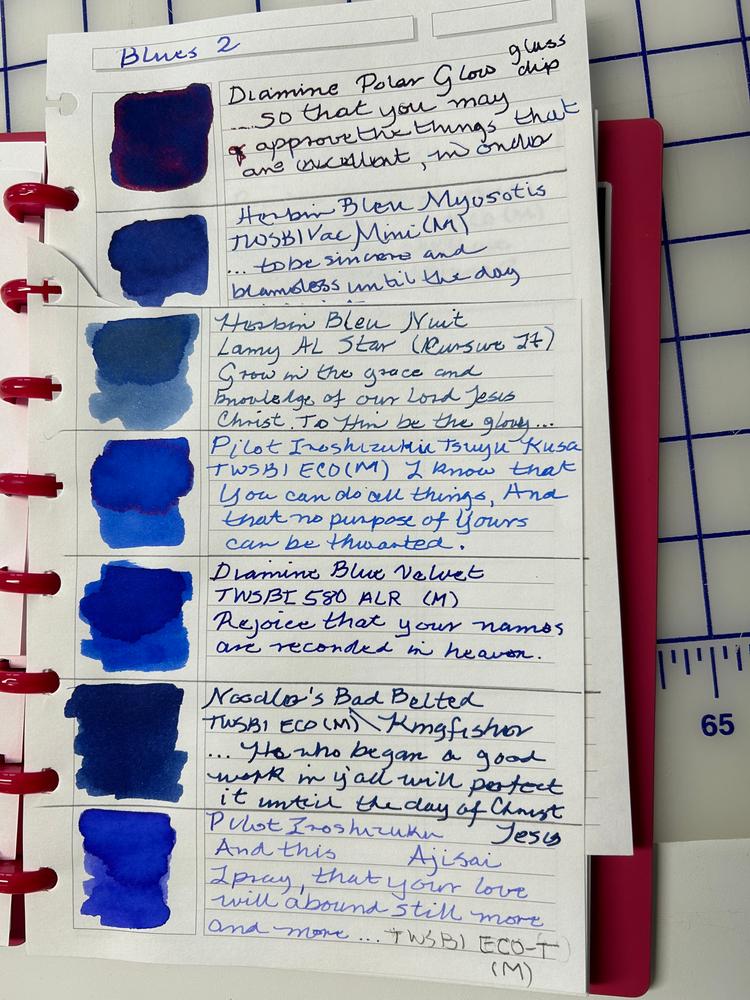 Blues 2
Diamine Polar Glow glass dip
... so that you may
approve the things that
are excellent, in order
Herbin Bleu Myosotis
TWSBI Vac Mini (M)
... to be sincere and
blameless until the day
Herbin Bleu Nuit
Lamy AL Star (Kursive IF)
Grow in the grace and
knowledge of our Lord Jesus
Christ. To Him be the glory...
Pilot Iroshizuku Tsuyu Kusa
TWSBI ECO (M) I know that
You can do all things, And
that no purpose of Yours
can be thwarted.
Diamine Blue Velvet
TWSBI 580 ALR (M)
Rejoice that your names
are recorded in heaven.
Noodler's Bad Belted
TWSBI ECO (M) Kingfisher
... He who began a good
work in y'all will perfect
it until the day of Christ
Jesus
Pilot Iroshizuku
And this Ajisai
I pray, that your love
will abound still more
and more ... TWSBI ECO-T
(M)
65